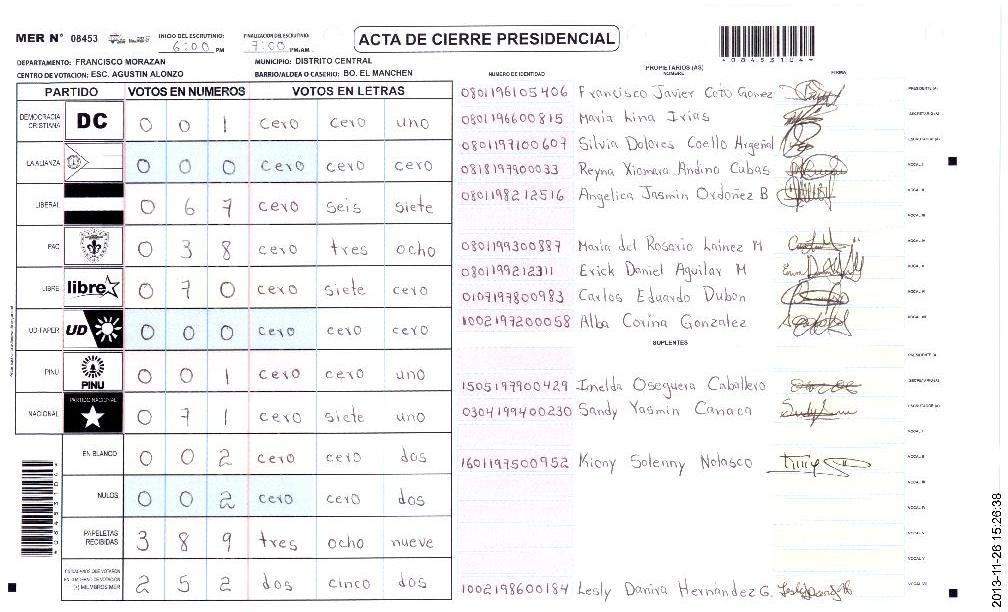 MER N° 08453
INICIO DEL ESCRUTINIO: 6:00 PM
FINALIZACION DEL ESCRUTINIO: 7:00 PM/AM
ACTA DE CIERRE PRESIDENCIAL
08453104
DEPARTAMENTO: FRANCISCO MORAZAN
MUNICIPIO: DISTRITO CENTRAL
CENTRO DE VOTACION: ESC. AGUSTIN ALONZO
BARRIO/ALDEA O CASERIO: BO. EL MANCHEN
PARTIDO VOTOS EN NUMEROS VOTOS EN LETRAS
DEMOCRACIA CRISTIANA DC 0 0 1 cero cero uno
LA ALIANZA 0 0 0 cero cero cero
LIBERAL 0 6 7 cero seis siete
PAC 0 3 8 cero tres ocho
LIBRE libre 0 7 0 cero siete cero
UD-FAPER UD 0 0 0 cero cero cero
PINU PINU 0 0 1 cero cero uno
NACIONAL PARTIDO NACIONAL 0 7 1 cero siete uno
EN BLANCO 0 0 2 cero cero dos
NULOS 0 0 2 cero cero dos
PAPELETAS RECIBIDAS 3 8 9 tres ocho nueve
CIUDADANOS QUE VOTARON (+) MIEMBROS MER 2 5 2 dos cinco dos
NUMERO DE IDENTIDAD PROPIETARIOS (AS) NOMBRE FIRMA
0801196105406 Francisco Javier Coto Gomez PRESIDENTE (A)
0801196600815 Maria Lina Irias SECRETARIO (A)
0801197100607 Silvia Dolores Coello Argeñal ESCRUTADOR (A)
0818197900033 Reyna Xiomara Andino Cubas VOCAL I
0801198212516 Angelica Jasmin Ordoñez B VOCAL II
VOCAL III
0801199300887 Maria del Rosario Lainez M VOCAL IV
0801199212311 Erick Daniel Aguilar M VOCAL V
0107197800983 Carlos Eduardo Dubon VOCAL VI
1002197200058 Alba Corina Gonzalez VOCAL VII
SUPLENTES
PRESIDENTE (A)
1505197900429 Imelda Oseguera Caballero SECRETARIO (A)
0304199400230 Sandy Yasmin Canaca ESCRUTADOR (A)
VOCAL I
1601197500952 Kieny Solenny Nolasco VOCAL II
VOCAL III
VOCAL IV
VOCAL V
VOCAL VI
1002198600184 Lesly Danira Hernández G. VOCAL VII
2013-11-26 15:26:38